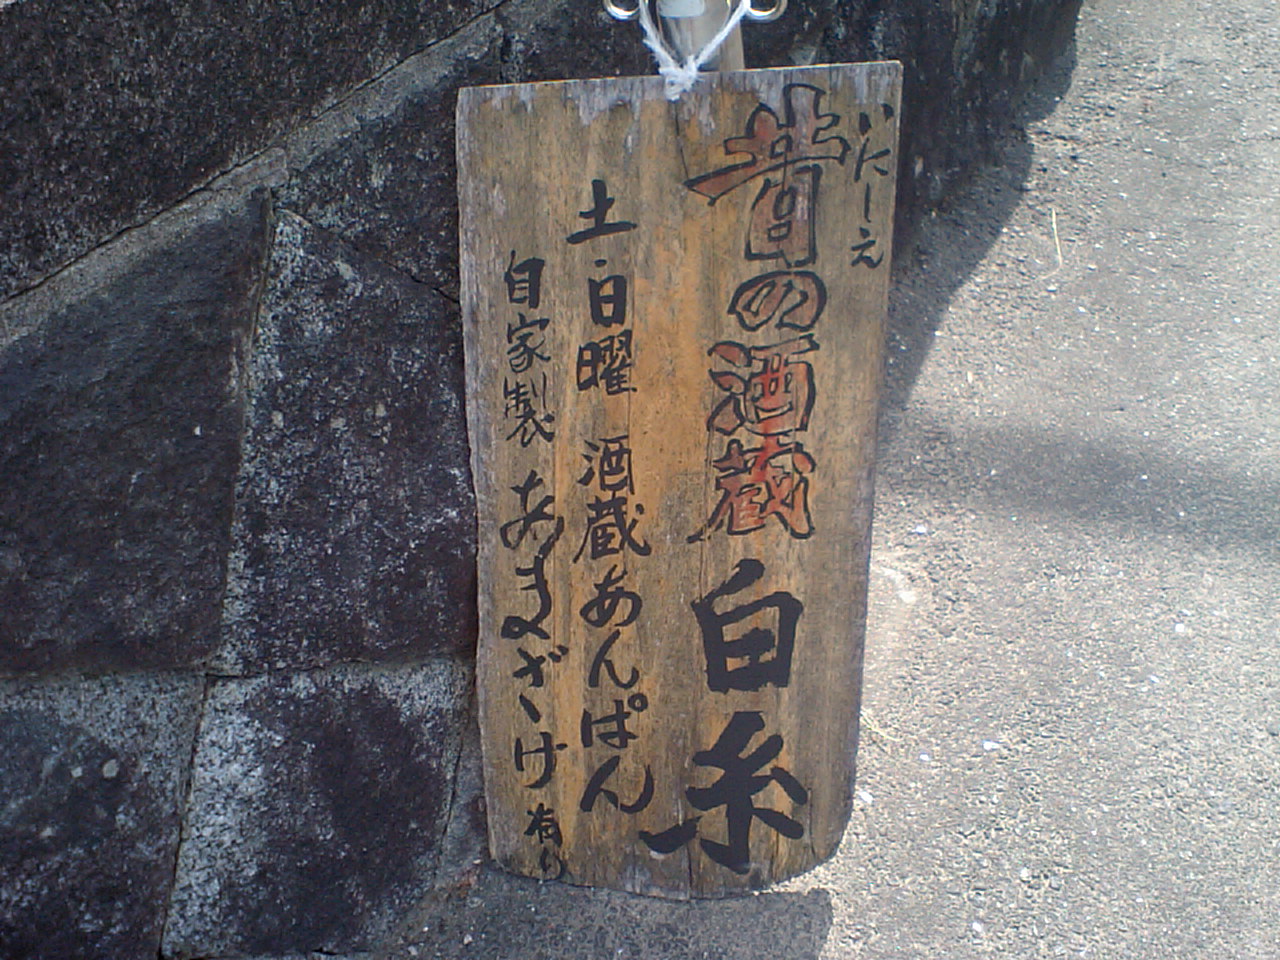 いにしえ
昔の酒蔵 白糸
土・日曜 酒蔵あんぱん
自家製 あまざけ 有り